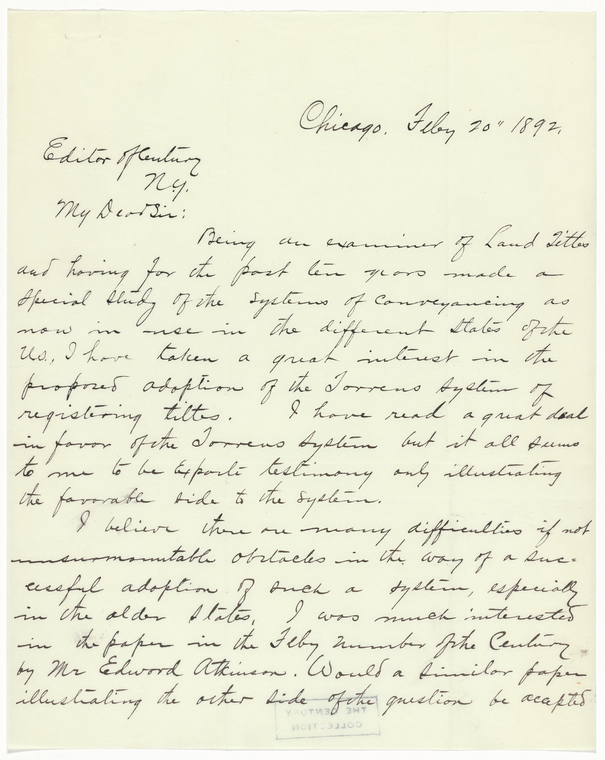 Chicago. Feby 20" 1892.
Editor of Century
N.Y.
My Dear Sir:
Being an examiner of Land Titles
and having for the past ten years made a
special study of the systems of conveyancing as
now in use in the different states of the
U.S., I have taken a great interest in the
proposed adoption of the Torrens System of
registering titles. I have read a great deal
in favor of the Torrens System but it all seems
to me to be Exparte testimony only illustrating
the favorable side to the System.
I believe there are many difficulties if not
unsurmountable obstacles in the way of a suc-
cessful adoption of such a system, especially
in the older States. I was much interested
in the paper in the Feby number of the Century
by Mr Edward Atkinson. Would a similar paper
illustrating the other side of the question be acepted
THE CENTURY
COLLECTION